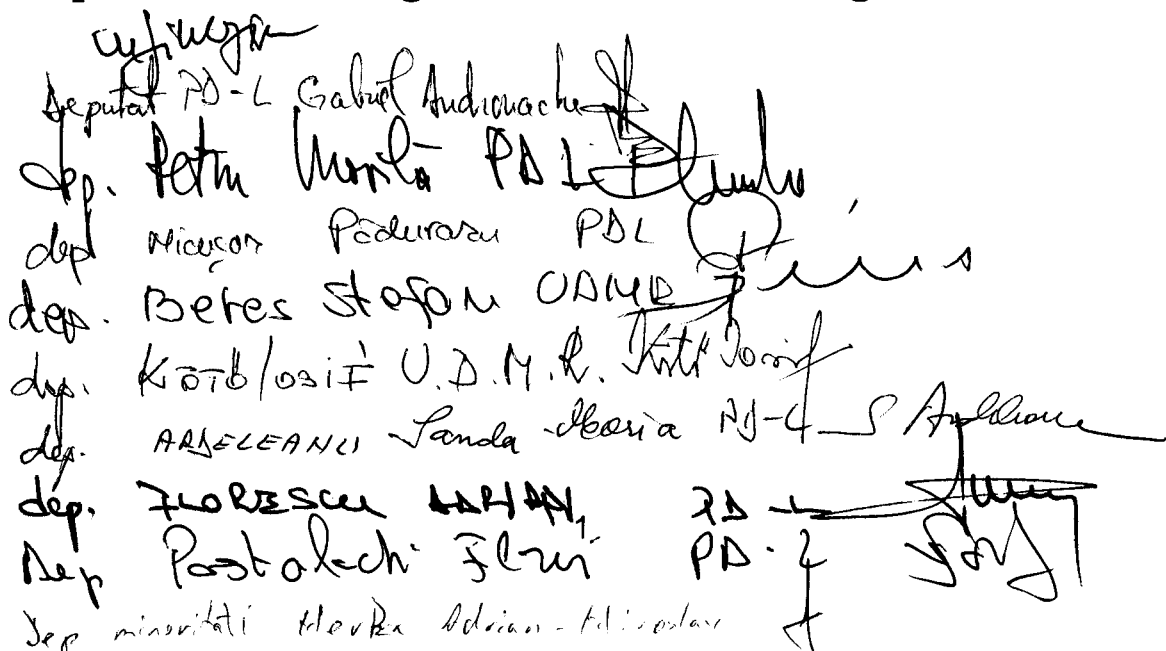 Deputat PD-L Gabriel Andronache
dep. Petru Movilă PDL
dep Nicușor Păduraru PDL
dep. Beres Stefan UDMR
dep. Kötő Iosif U.D.M.R. Kötő Iosif
dep. ARDELEANU Sanda-Maria PD-L S Ardeleanu
dep. FLORESCU ADRIAN, PD-L
Dep Postolachi Florin PD-L
Dep minorități Merka Adrian-Miroslav